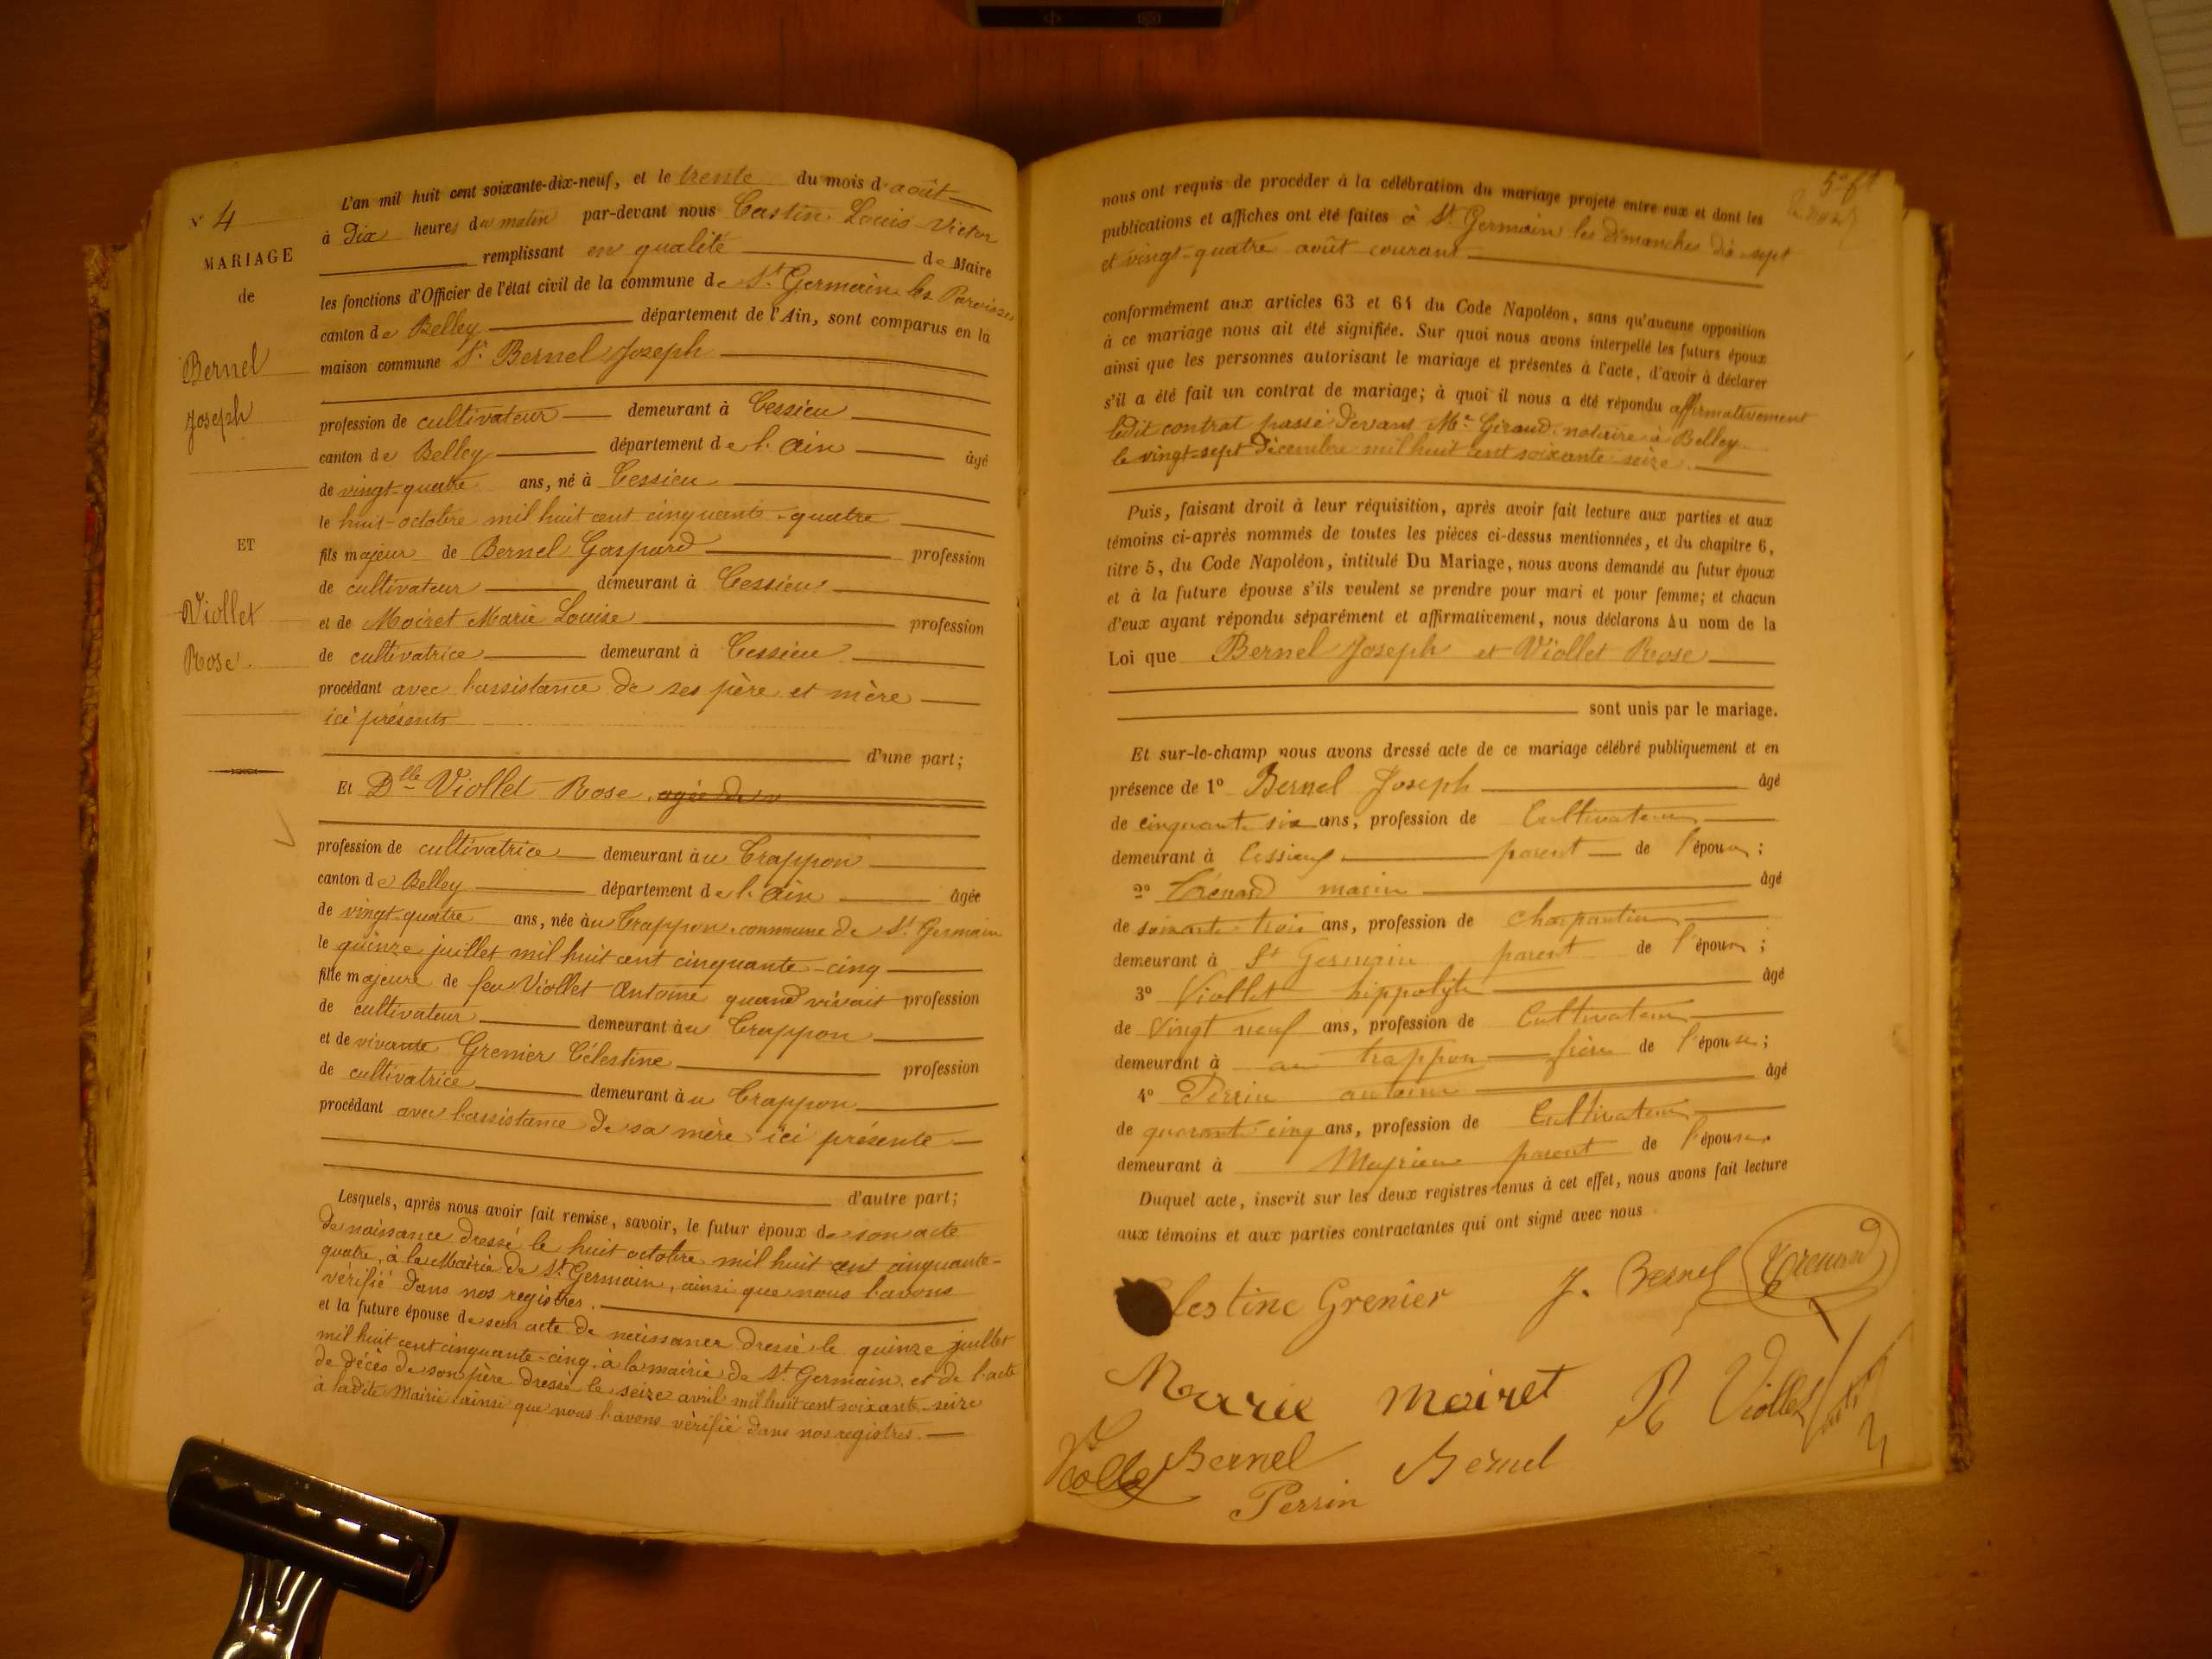 N° 4
MARIAGE
de
Bernel
Joseph
ET
Viollet
Rose
L'an mil huit cent soixante-dix-neuf, et le trente du mois d'août
à Dix heures du matin par-devant nous Castin Louis-Victor
remplissant en qualité de Maire
les fonctions d'Officier de l'état civil de la commune de St. Germain les Paroisses
canton de Belley département de l'Ain, sont comparus en la
maison commune Sr. Bernel Joseph
profession de cultivateur demeurant à Cessieu
canton de Belley département de l'Ain âgé
de vingt-quatre ans, né à Cessieu
le huit octobre mil huit cent cinquante-quatre
fils majeur de Bernel Gaspard profession
de cultivateur demeurant à Cessieu
et de Moiret Marie Louise profession
de cultivatrice demeurant à Cessieu
procédant avec l'assistance de ses père et mère
ici présents
d'une part;
Et Dlle Viollet Rose, agée de
profession de cultivatrice demeurant au Crappon
canton de Belley département de l'Ain âgée
de vingt-quatre ans, née au Crappon, commune de St. Germain
le quinze juillet mil huit cent cinquante-cinq
fille majeure de feu Viollet Antoine quand vivait profession
de cultivateur demeurant au Crappon
et de vivante Grenier Célestine profession
de cultivatrice demeurant au Crappon
procédant avec l'assistance de sa mère ici présente
d'autre part;
Lesquels, après nous avoir fait remise, savoir, le futur époux de son acte
de naissance dressé le huit octobre mil huit cent cinquante-
quatre, à la Mairie de St. Germain, ainsi que nous l'avons
vérifié dans nos registres.
et la future épouse de son acte de naissance dressé le quinze juillet
mil huit cent cinquante-cinq, à la mairie de St. Germain, et de l'acte
de décès de son père dressé le seize avril mil huit cent soixante-seize
à ladite Mairie ainsi que nous l'avons vérifié dans nos registres.
nous ont requis de procéder à la célébration du mariage projeté entre eux et dont les
publications et affiches ont été faites à St. Germain les dimanches dix-sept
et vingt-quatre août courant
conformément aux articles 63 et 64 du Code Napoléon, sans qu'aucune opposition
à ce mariage nous ait été signifiée. Sur quoi nous avons interpellé les futurs époux
ainsi que les personnes autorisant le mariage et présentes à l'acte, d'avoir à déclarer
s'il a été fait un contrat de mariage; à quoi il nous a été répondu affirmativement
ledit contrat passé devant Me. Giraud notaire à Belley
le vingt-sept Décembre mil huit cent soixante-seize.
Puis, faisant droit à leur réquisition, après avoir fait lecture aux parties et aux
témoins ci-après nommés de toutes les pièces ci-dessus mentionnées, et du chapitre 6,
titre 5, du Code Napoléon, intitulé Du Mariage, nous avons demandé au futur époux
et à la future épouse s'ils veulent se prendre pour mari et pour femme; et chacun
d'eux ayant répondu séparément et affirmativement, nous déclarons Au nom de la
Loi que Bernel Joseph et Viollet Rose
sont unis par le mariage.
Et sur-le-champ nous avons dressé acte de ce mariage célébré publiquement et en
présence de 1° Bernel Joseph âgé
de cinquante six ans, profession de Cultivateur
demeurant à Cessieux parent de l'époux;
2° Trénard marin âgé
de soixante trois ans, profession de charpantier
demeurant à St Germain parent de l'époux;
3° Viollet hippolyte âgé
de Vingt neuf ans, profession de Cultivateur
demeurant à au trappon frère de l'épouse;
4° Perrin antoine âgé
de quarante cinq ans, profession de Cultivateur
demeurant à Meyrieu parent de l'épouse.
Duquel acte, inscrit sur les deux registres tenus à cet effet, nous avons fait lecture
aux témoins et aux parties contractantes qui ont signé avec nous
lestine Grenier J. Bernel Trenard
Marie Moiret R Viollet
Viollet Bernel Bernel
Perrin